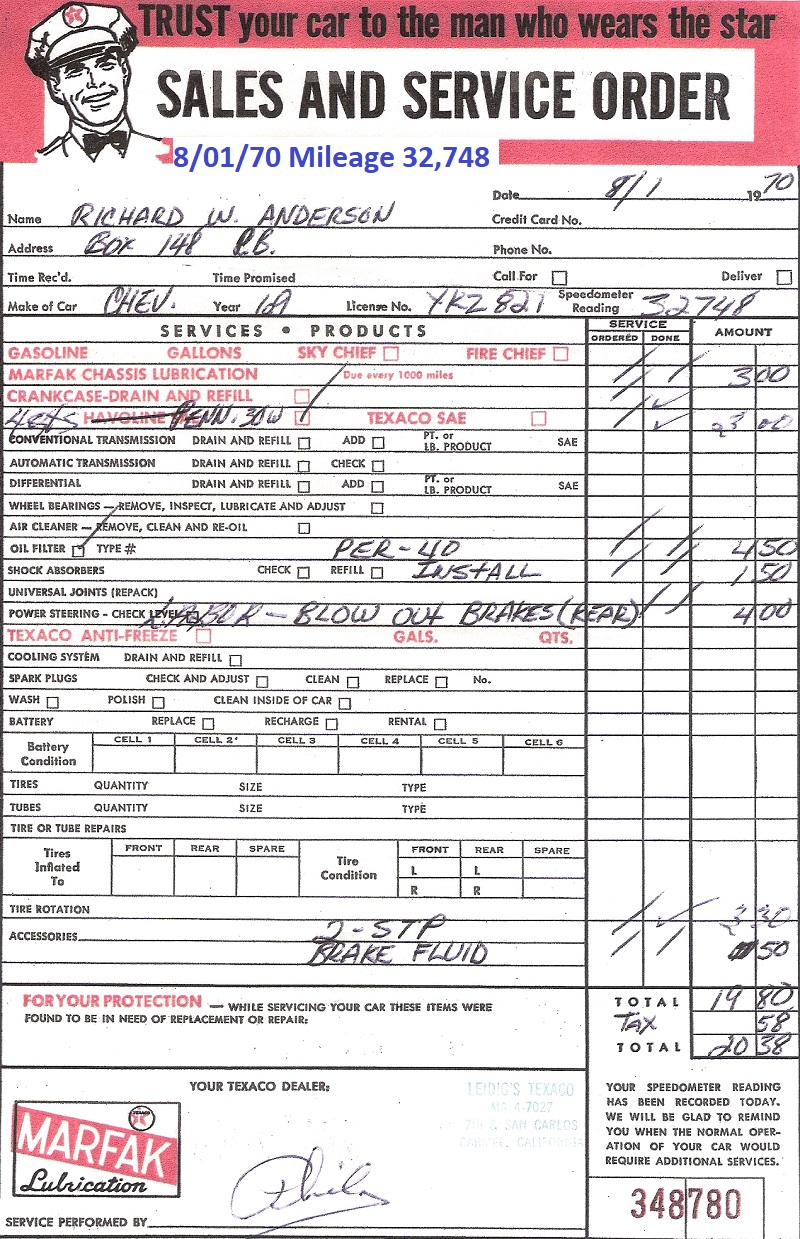 TRUST your car to the man who wears the star
SALES AND SERVICE ORDER
8/01/70 Mileage 32,748
Date 8/1 1970
Name RICHARD W. ANDERSON Credit Card No.
Address BOX 148 P.B. Phone No.
Time Rec'd. Time Promised Call For Deliver
Make of Car CHEV. Year 69 License No. YRZ 827 Speedometer Reading 32748
SERVICES • PRODUCTS SERVICE ORDERED DONE AMOUNT
GASOLINE GALLONS SKY CHIEF FIRE CHIEF
MARFAK CHASSIS LUBRICATION Due every 1000 miles 3 00
CRANKCASE-DRAIN AND REFILL
4 qts HAVOLINE PENN. 30W TEXACO SAE 3 00
CONVENTIONAL TRANSMISSION DRAIN AND REFILL ADD PT. or LB. PRODUCT SAE
AUTOMATIC TRANSMISSION DRAIN AND REFILL CHECK
DIFFERENTIAL DRAIN AND REFILL ADD PT. or LB. PRODUCT SAE
WHEEL BEARINGS — REMOVE, INSPECT, LUBRICATE AND ADJUST
AIR CLEANER — REMOVE, CLEAN AND RE-OIL
OIL FILTER TYPE # PER-40 4 50
SHOCK ABSORBERS CHECK REFILL INSTALL 1 50
UNIVERSAL JOINTS (REPACK)
POWER STEERING - CHECK LEVEL LABOR - BLOW OUT BRAKES (REAR) 4 00
TEXACO ANTI-FREEZE GALS. QTS.
COOLING SYSTEM DRAIN AND REFILL
SPARK PLUGS CHECK AND ADJUST CLEAN REPLACE No.
WASH POLISH CLEAN INSIDE OF CAR
BATTERY REPLACE RECHARGE RENTAL
Battery Condition CELL 1 CELL 2 CELL 3 CELL 4 CELL 5 CELL 6
TIRES QUANTITY SIZE TYPE
TUBES QUANTITY SIZE TYPE
TIRE OR TUBE REPAIRS
Tires Inflated To FRONT REAR SPARE Tire Condition FRONT REAR SPARE
L L
R R
TIRE ROTATION
ACCESSORIES 2-STP 3 30
BRAKE FLUID 50
FOR YOUR PROTECTION — WHILE SERVICING YOUR CAR THESE ITEMS WERE
FOUND TO BE IN NEED OF REPLACEMENT OR REPAIR:
TOTAL 19 80
TAX 58
TOTAL 20 38
YOUR TEXACO DEALER:
LEIDIG'S TEXACO
MA 4-7027
7TH & SAN CARLOS
CARMEL, CALIFORNIA
YOUR SPEEDOMETER READING
HAS BEEN RECORDED TODAY.
WE WILL BE GLAD TO REMIND
YOU WHEN THE NORMAL OPER-
ATION OF YOUR CAR WOULD
REQUIRE ADDITIONAL SERVICES.
TEXACO
MARFAK
Lubrication
SERVICE PERFORMED BY
348780